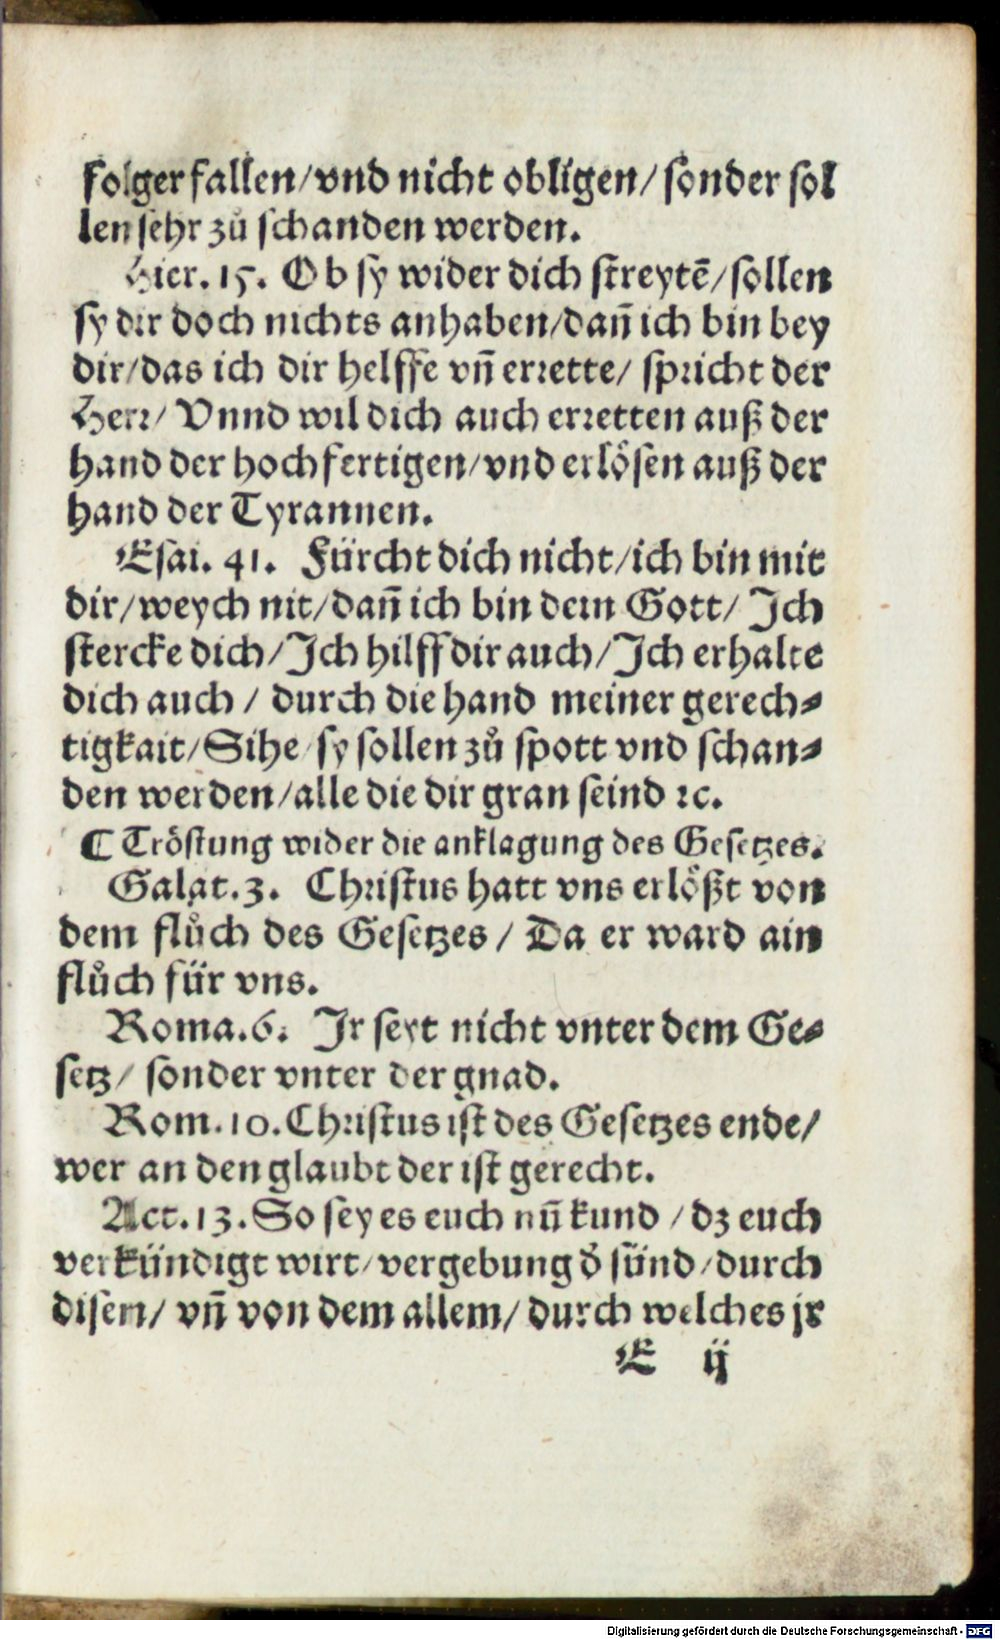 folger fallen/vnd nicht obligen/ sonder sol
len sehr zů schanden werden.
Hier. 15. Ob sy wider dich streytẽ/sollen
sy dir doch nichts anhaben/dañ ich bin bey
dir/das ich dir helffe vñ errette/ spricht der
Herr/ Vnnd wil dich auch erretten auß der
hand der hochfertigen/vnd erlösen auß der
hand der Tyrannen.
Esai. 41. Fürcht dich nicht/ich bin mit
dir/weych nit/dañ ich bin dein Gott/ Ich
stercke dich/Ich hilff dir auch/Ich erhalte
dich auch / durch die hand meiner gerech⸗
tigkait/Sihe/sy sollen zů spott vnd schan⸗
den werden/alle die dir gran seind ꝛc.
¶ Tröstung wider die anklagung des Gesetzes.
Galat.3. Christus hatt vns erlößt von
dem flůch des Gesetzes / Da er ward ain
flůch für vns.
Roma.6. Ir seyt nicht vnter dem Ge⸗
setz/ sonder vnter der gnad.
Rom.10.Christus ist des Gesetzes ende/
wer an den glaubt der ist gerecht.
Act.13.So sey es euch nũ kund /dz euch
verkündigt wirt/vergebung d̕ sünd/durch
disen/ vñ von dem allem/ durch welches jr
E ij
Digitalisierung gefördert durch die Deutsche Forschungsgemeinschaft - DFG